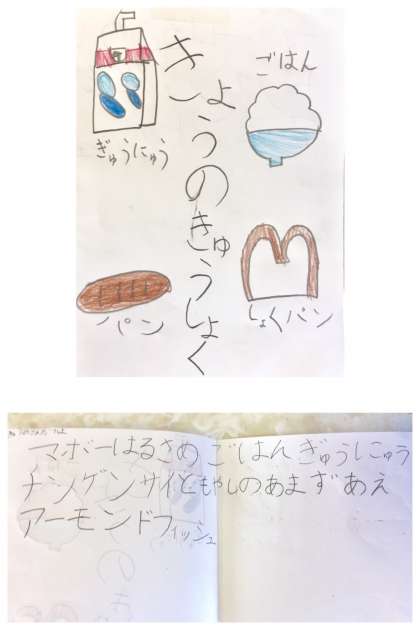 きょうのきゅうしょく
ぎゅうにゅう
ごはん
パン
しょくパン
マボーはるさめ ごはん ぎゅうにゅう
ナンゲンサイともやしのあまずあえ
アーモンドフィッシュ